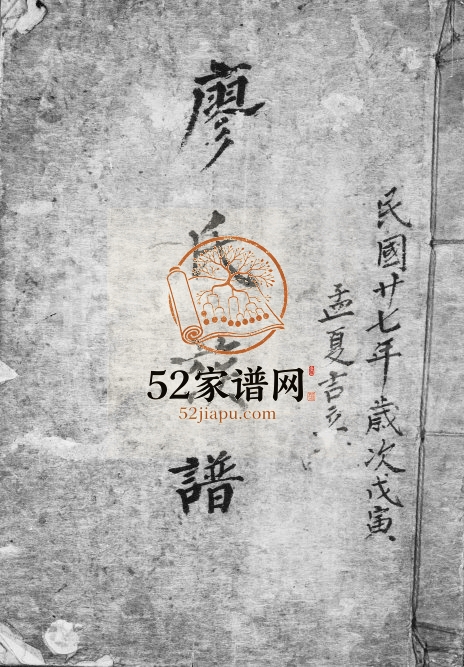 民國廿七年歲次戊寅
孟夏吉立
廖氏族譜
52家谱网
52jiapu.com